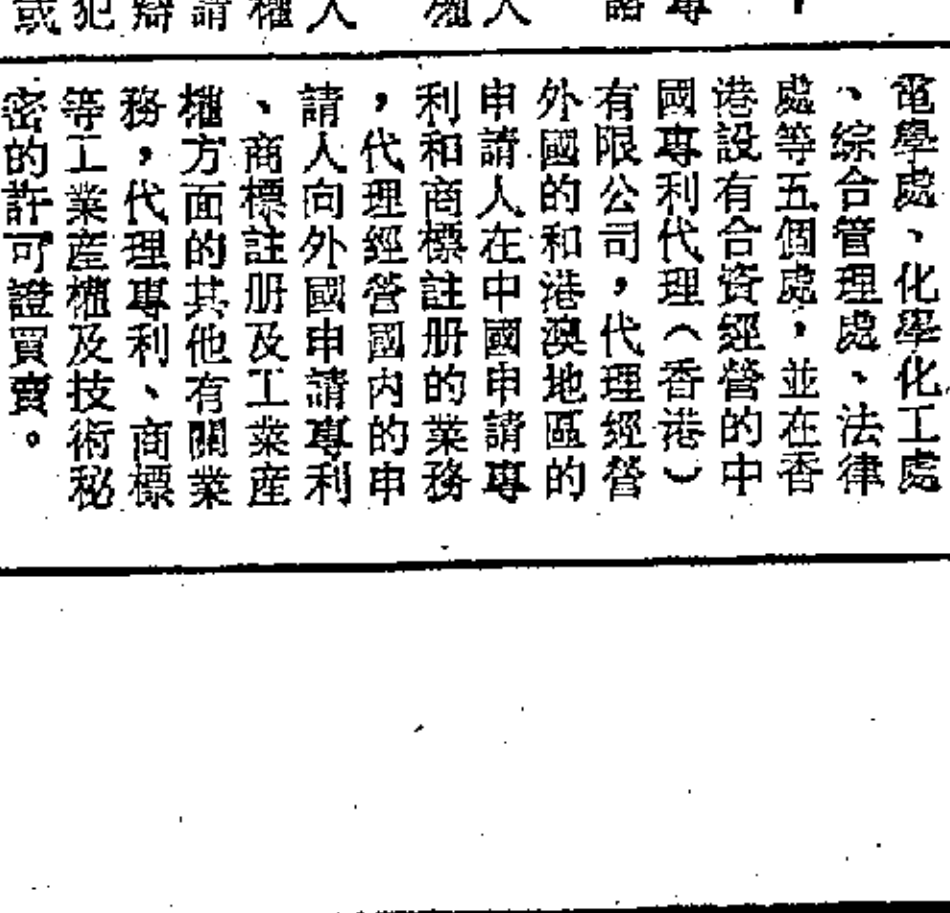 電學處、化學化工處
、綜合管理處、法律
處等五個處，並在香
港設有合資經營的中
國專利代理（香港）
有限公司，代理經營
外國的和港澳地區的
申請人在中國申請專
利和商標註册的業務
，代理經營國内的申
請人向外國申請專利
、商標註册及工業産
權方面的其他有關業
務，代理專利、商標
等工業産權及技術秘
密的許可證買賣。